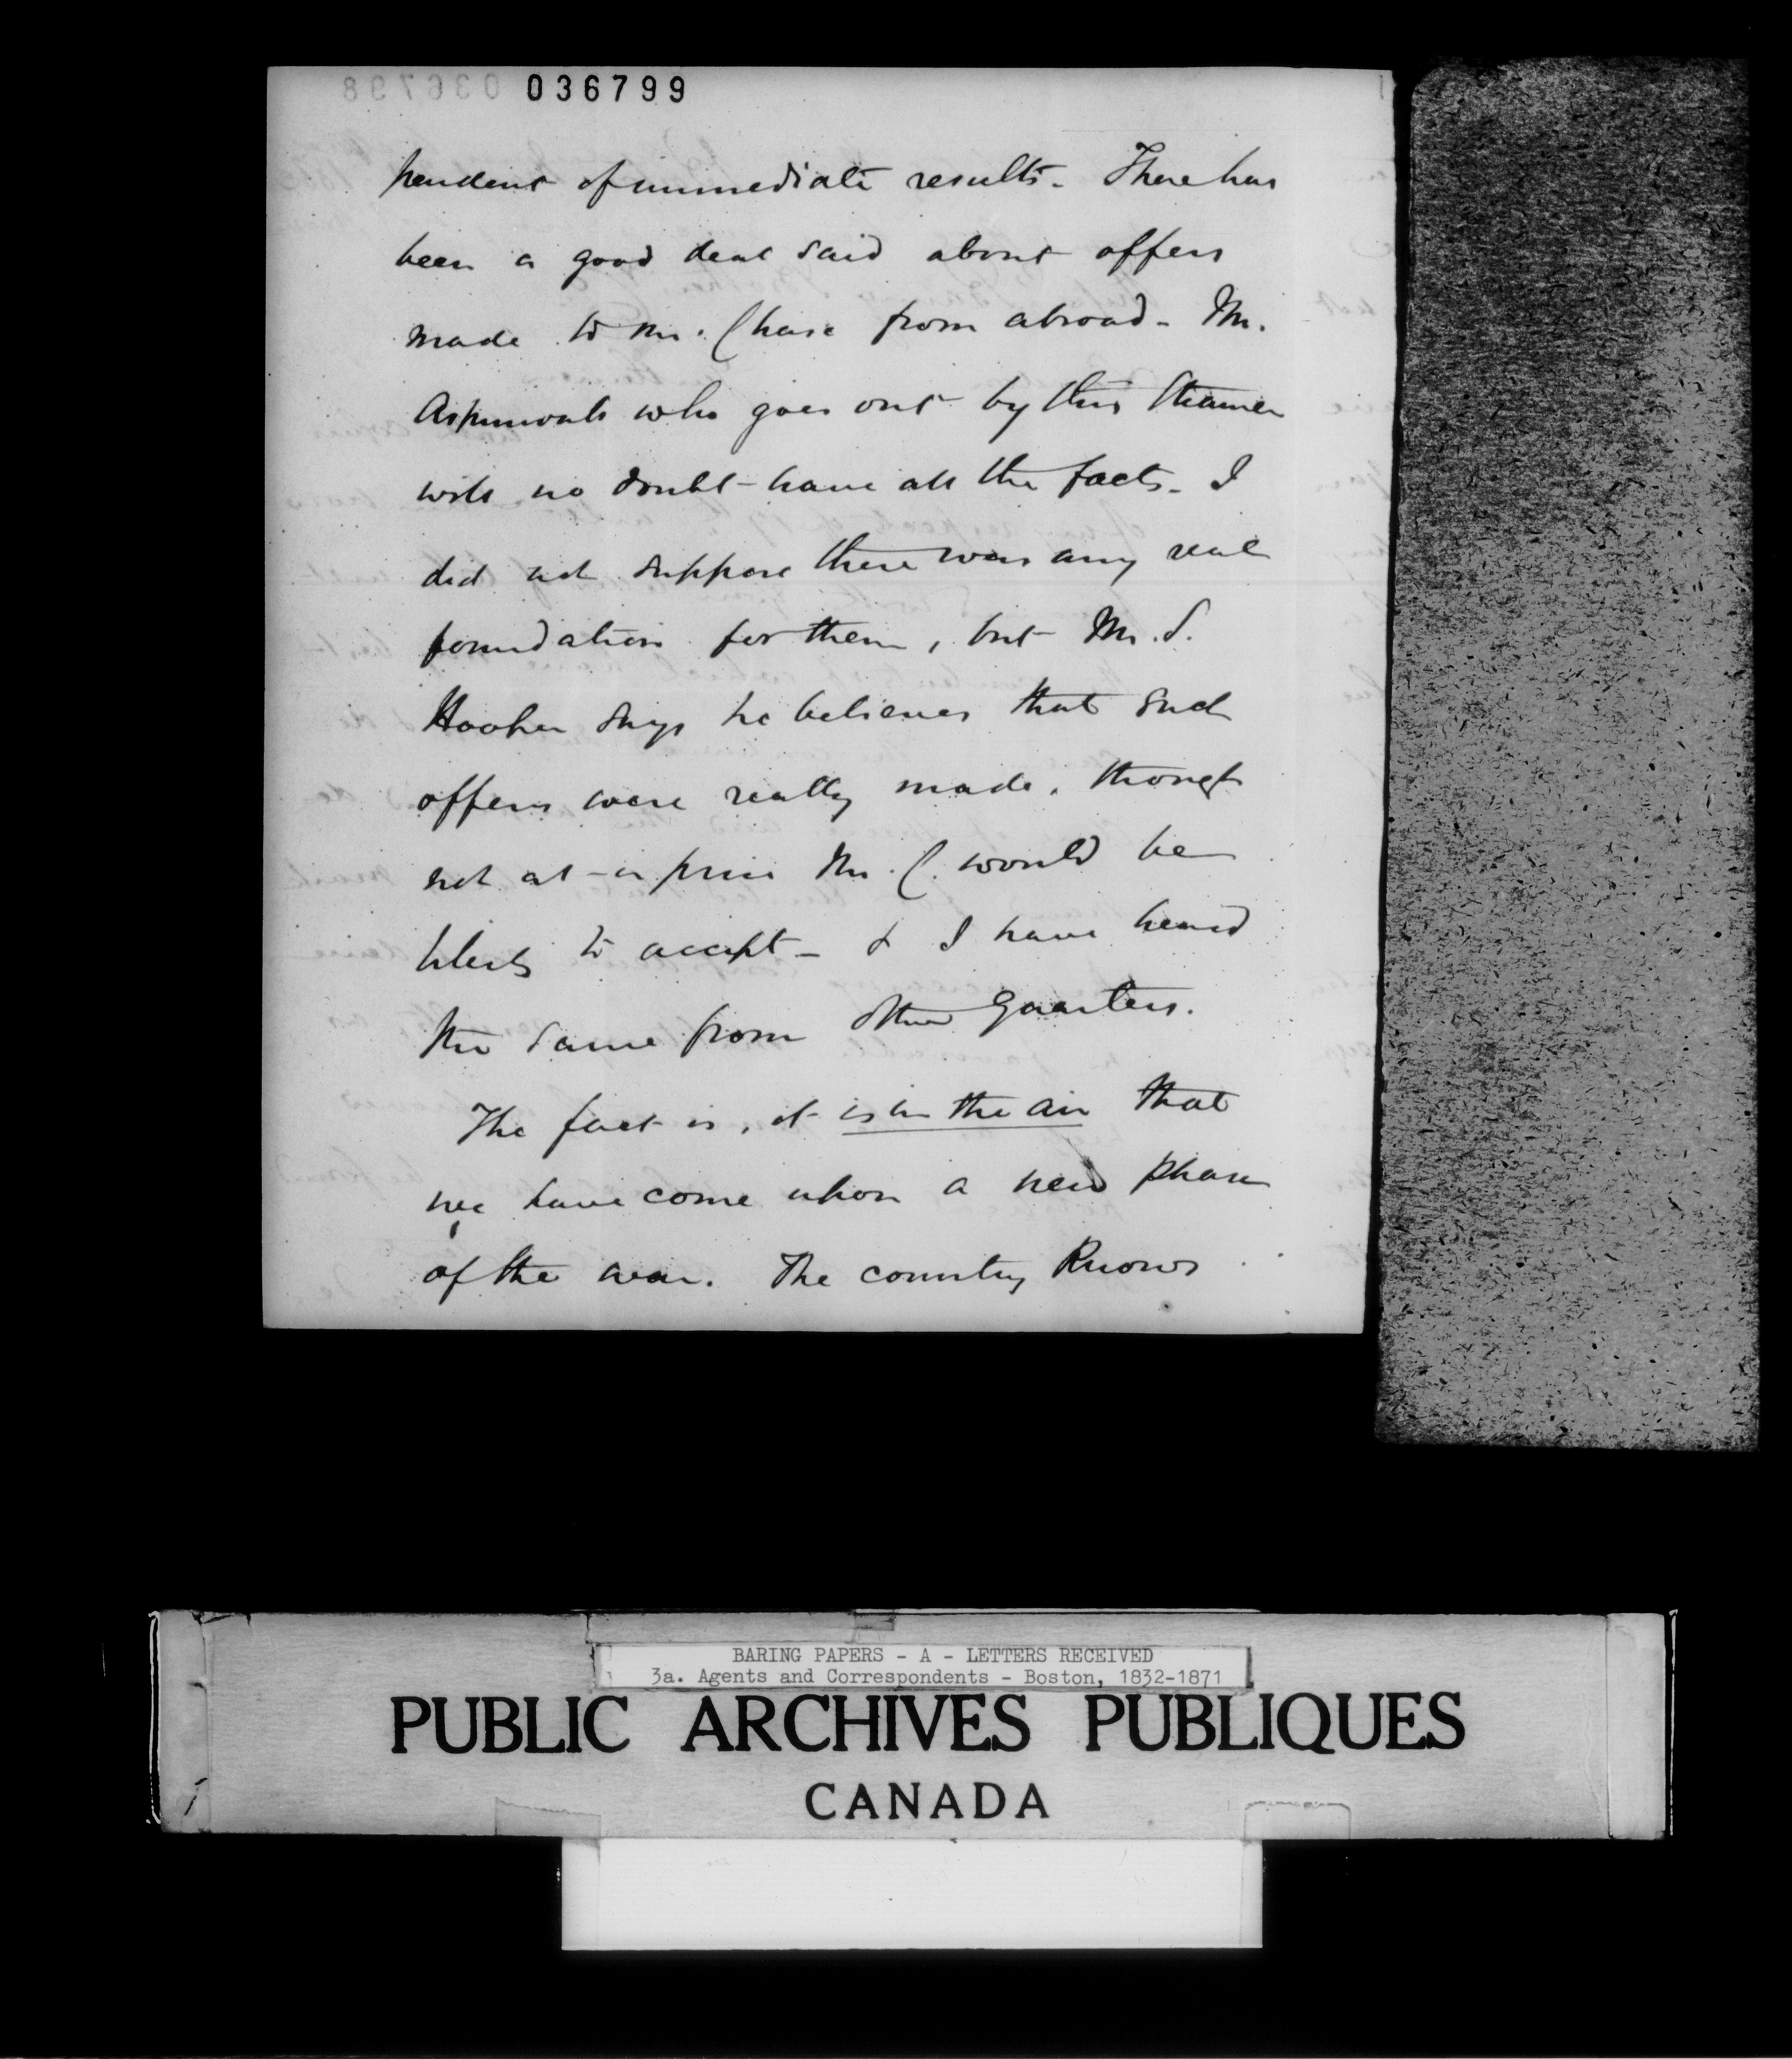 036798 036799
pendent of immediate results. There has
been a good deal said about offers
made to Mr. Chase from abroad - Mr.
Aspinwall who goes out by this Steamer
will no doubt have all the facts - I
did not suppose there was any real
foundation for them, but Mr. S.
Hooper says he believes that such
offers were really made, though
not at a price Mr. C. would be
likely to accept - & I have heard
the same from other quarters.
The fact is, it is in the air that
we have come upon a new phase
of the war. The country knows
BARING PAPERS - A - LETTERS RECEIVED
3a. Agents and Correspondents - Boston, 1832-1871
PUBLIC ARCHIVES PUBLIQUES
CANADA